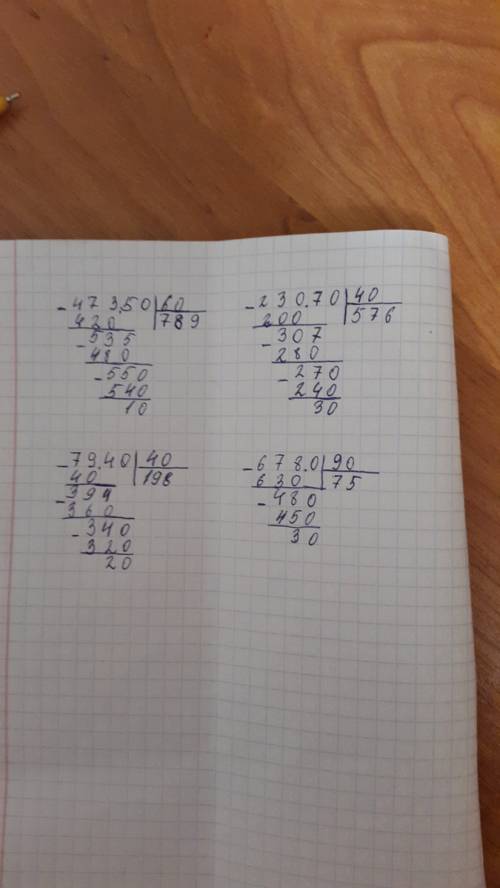 - 473.50 | 60
420 | 789
- 535
480
- 550
540
10
- 230.70 | 40
200 | 576
- 307
280
- 270
240
30
- 79.40 | 40
40 | 198
- 394
360
- 340
320
20
- 678.0 | 90
630 | 75
- 480
450
30